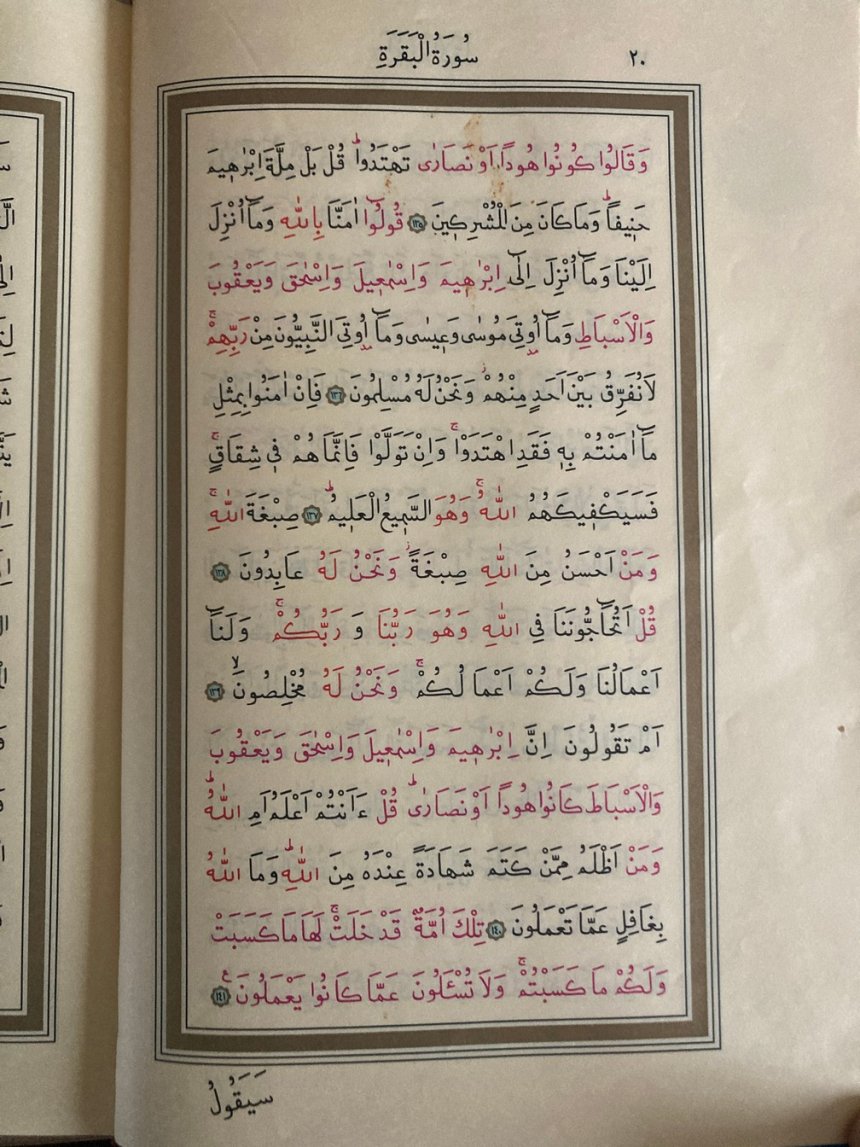 سُورَةُ الْبَقَرَةِ
٢٠
وَقَالُوا كُونُوا هُودًا اَوْ نَصَارٰى تَهْتَدُواؕ قُلْ بَلْ مِلَّةَ اِبْرٰهٖيمَ
حَنٖيفًاؕ وَمَا كَانَ مِنَ الْمُشْرِكٖينَ ﴿١٣٥﴾ قُولُٓوا اٰمَنَّا بِاللّٰهِ وَمَٓا اُنْزِلَ
اِلَيْنَا وَمَٓا اُنْزِلَ اِلٰٓى اِبْرٰهٖيمَ وَاِسْمٰعٖيلَ وَاِسْحٰقَ وَيَعْقُوبَ
وَالْاَسْبَاطِ وَمَٓا اُو۫تِيَ مُوسٰى وَعٖيسٰى وَمَٓا اُو۫تِيَ النَّبِيُّونَ مِنْ رَبِّهِمْۚ
لَا نُفَرِّقُ بَيْنَ اَحَدٍ مِنْهُمْۘ وَنَحْنُ لَهُ مُسْلِمُونَ ﴿١٣٦﴾ فَاِنْ اٰمَنُوا بِمِثْلِ
مَٓا اٰمَنْتُمْ بِهٖ فَقَدِ اهْتَدَوْاۚ وَاِنْ تَوَلَّوْا فَاِنَّمَا هُمْ فٖي شِقَاقٍۚ
فَسَيَكْفٖيكَهُمُ اللّٰهُۚ وَهُوَ السَّمٖيعُ الْعَلٖيمُؕ ﴿١٣٧﴾ صِبْغَةَ اللّٰهِۚ
وَمَنْ اَحْسَنُ مِنَ اللّٰهِ صِبْغَةًؗ وَنَحْنُ لَهُ عَابِدُونَ ﴿١٣٨﴾
قُلْ اَتُحَٓاجُّونَنَا فِي اللّٰهِ وَهُوَ رَبُّنَا وَ رَبُّكُمْۚ وَلَنَٓا
اَعْمَالُنَا وَلَكُمْ اَعْمَالُكُمْۚ وَنَحْنُ لَهُ مُخْلِصُونَۙ ﴿١٣٩﴾
اَمْ تَقُولُونَ اِنَّ اِبْرٰهٖيمَ وَاِسْمٰعٖيلَ وَاِسْحٰقَ وَيَعْقُوبَ
وَالْاَسْبَاطَ كَانُوا هُودًا اَوْ نَصَارٰىؕ قُلْ ءَاَنْتُمْ اَعْلَمُ اَمِ اللّٰهُؕ
وَمَنْ اَظْلَمُ مِمَّنْ كَتَمَ شَهَادَةً عِنْدَهُ مِنَ اللّٰهِؕ وَمَا اللّٰهُ
بِغَافِلٍ عَمَّا تَعْمَلُونَ ﴿١٤٠﴾ تِلْكَ اُمَّةٌ قَدْ خَلَتْۚ لَهَا مَا كَسَبَتْ
وَلَكُمْ مَا كَسَبْتُمْۚ وَلَا تُسْـَٔلُونَ عَمَّا كَانُوا يَعْمَلُونَ ع ﴿١٤١﴾
سَيَقُولُ